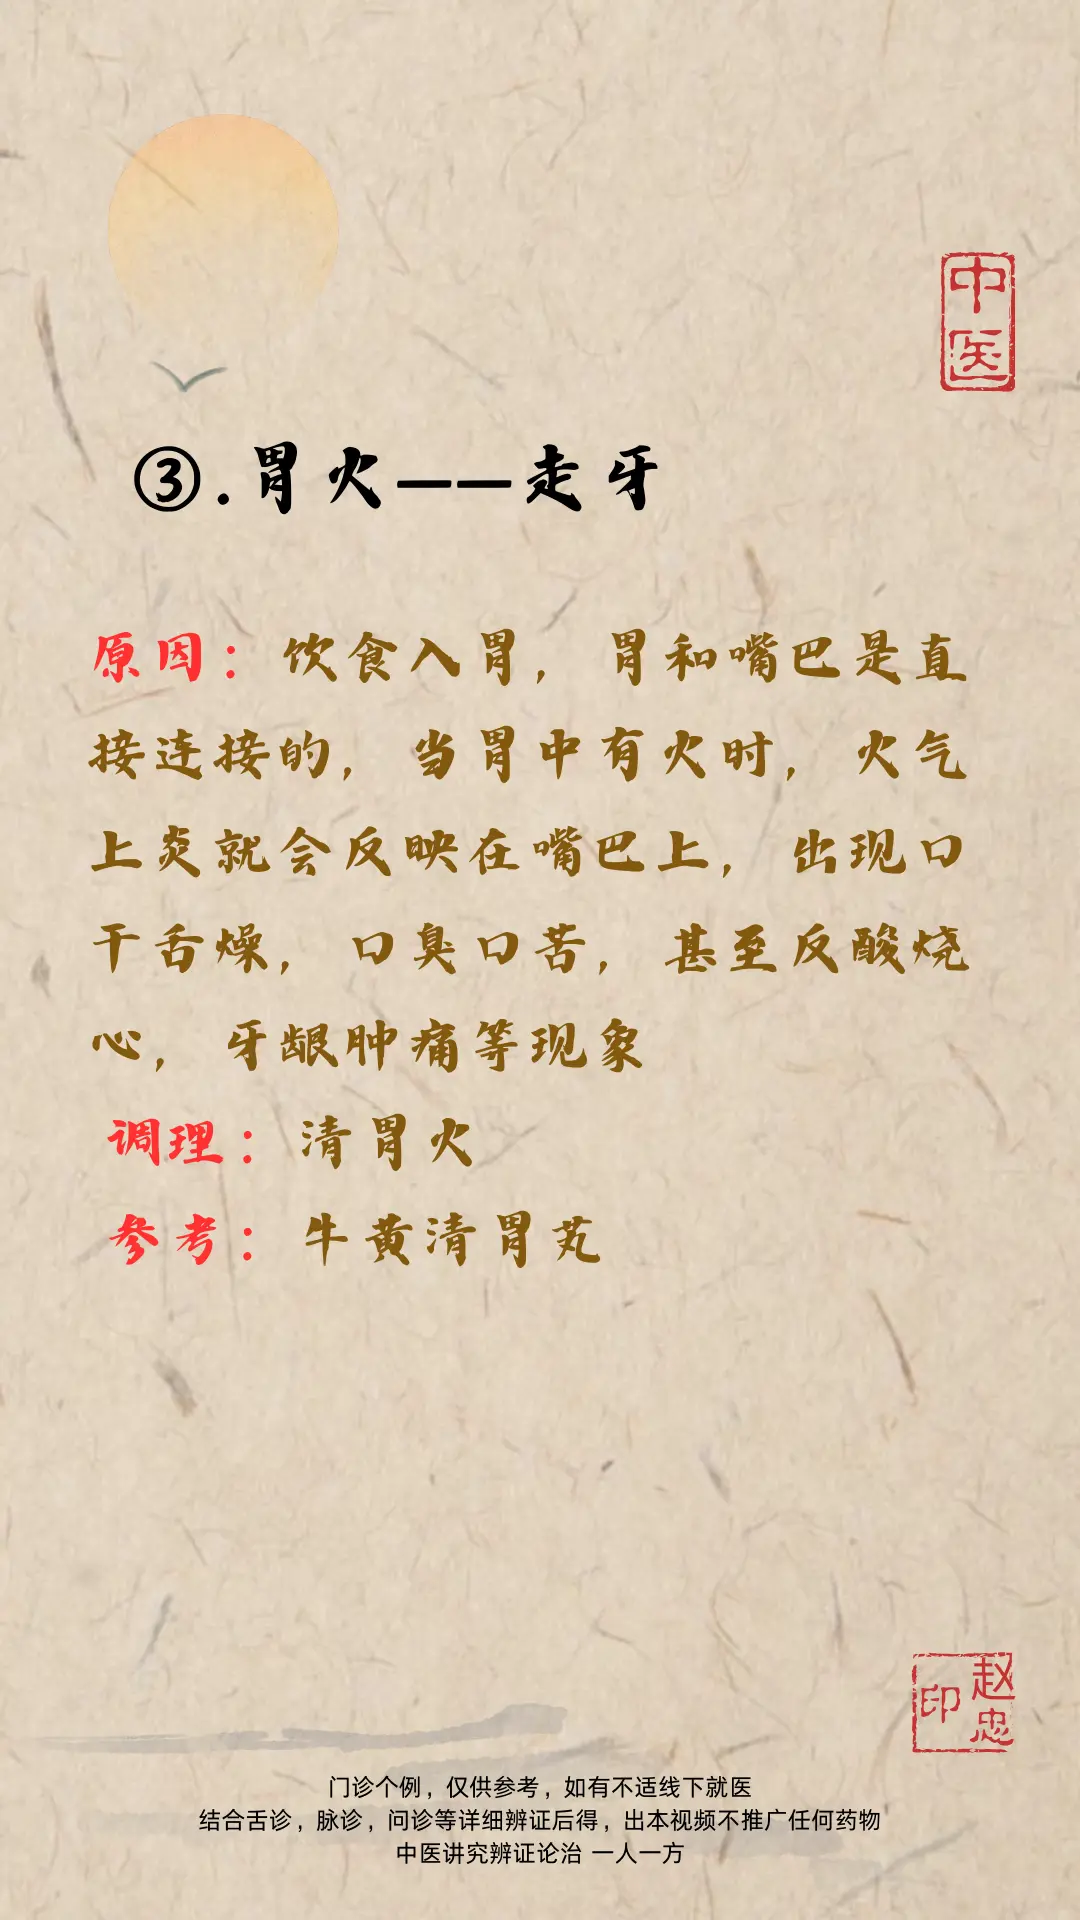 中医
③.胃火——走牙
原因：饮食入胃，胃和嘴巴是直
接连接的，当胃中有火时，火气
上炎就会反映在嘴巴上，出现口
干舌燥，口臭口苦，甚至反酸烧
心，牙龈肿痛等现象
调理：清胃火
参考：牛黄清胃芄
赵忠印
门诊个例，仅供参考，如有不适线下就医
结合舌诊，脉诊，问诊等详细辨证后得，出本视频不推广任何药物
中医讲究辨证论治 一人一方